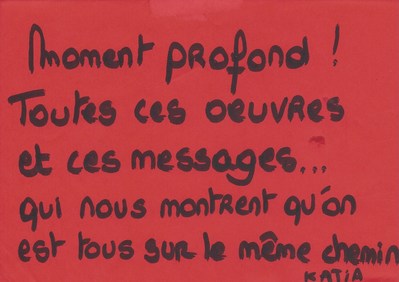 Moment profond !
Toutes ces oeuvres
et ces messages...
qui nous montrent qu'on
est tous sur le même chemin
KATIA